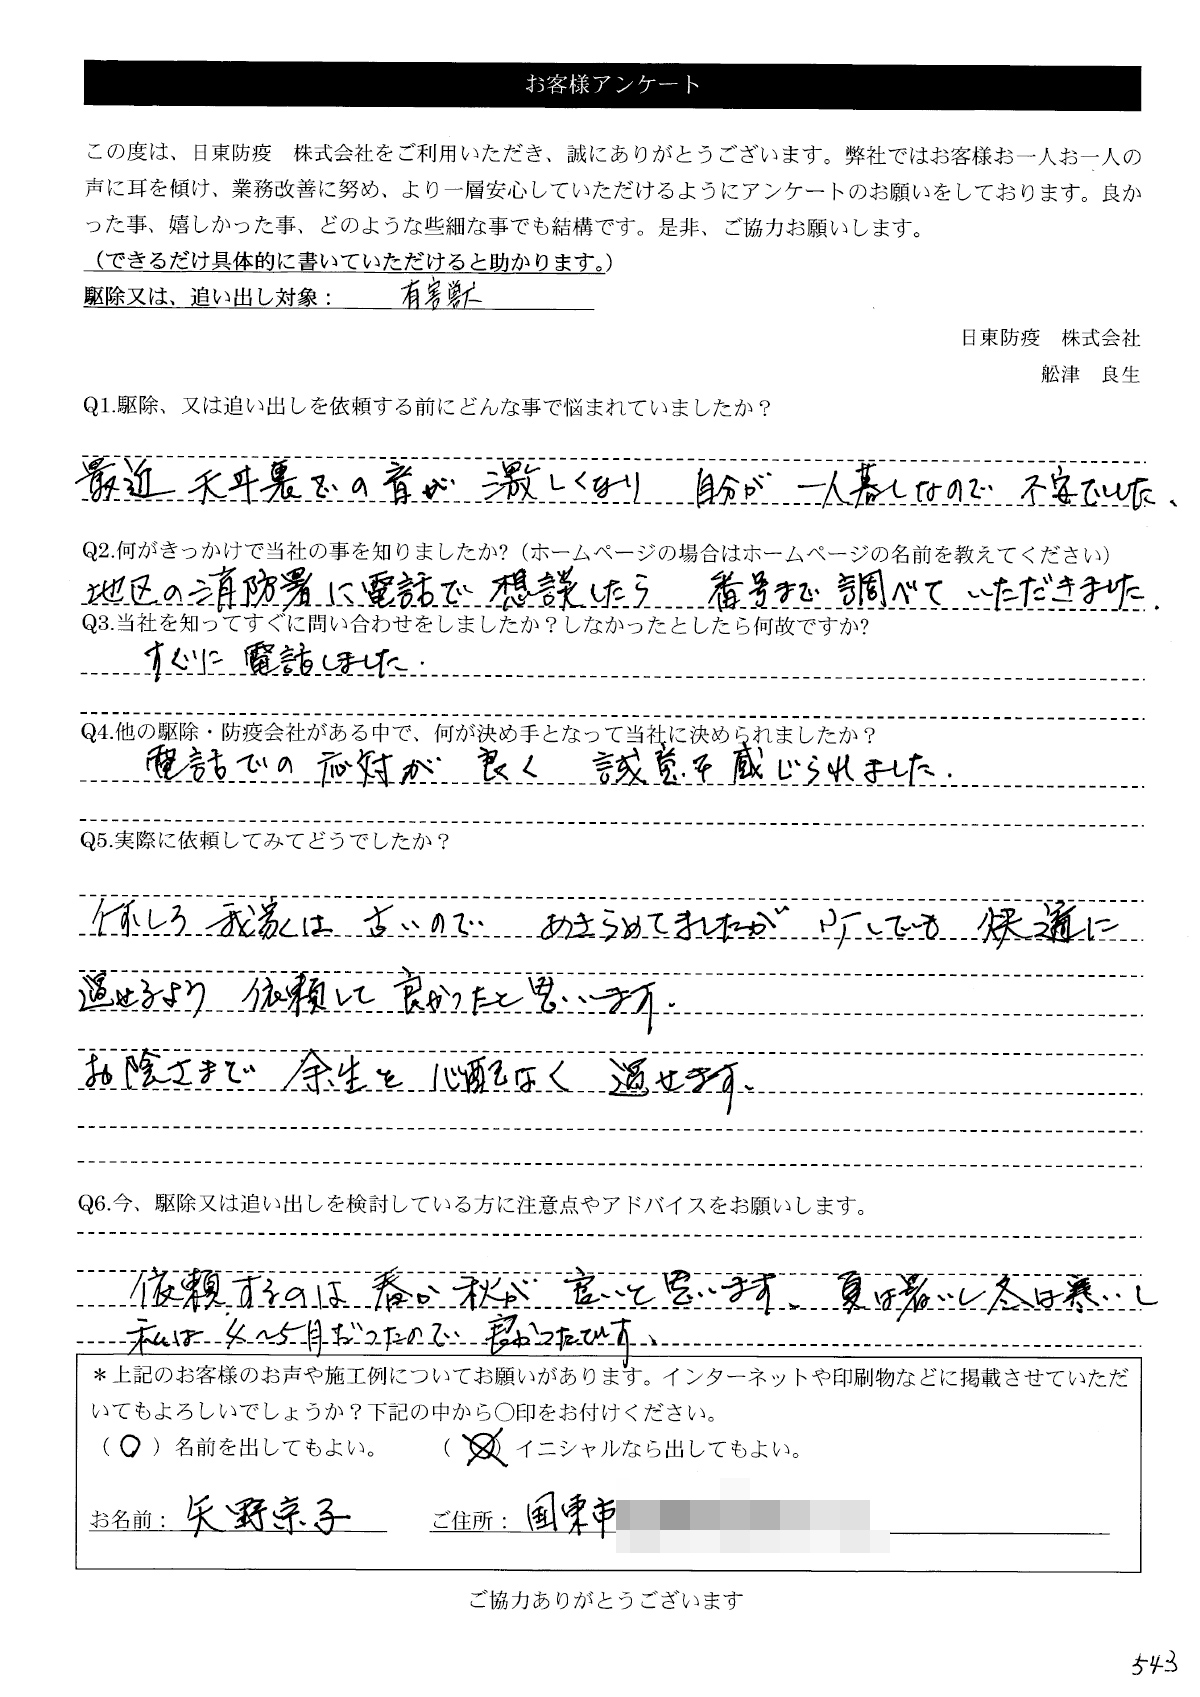 お客様アンケート
この度は、日東防疫　株式会社をご利用いただき、誠にありがとうございます。弊社ではお客様お一人お一人の
声に耳を傾け、業務改善に努め、より一層安心していただけるようにアンケートのお願いをしております。良か
った事、嬉しかった事、どのような些細な事でも結構です。是非、ご協力お願いします。
（できるだけ具体的に書いていただけると助かります。）
駆除又は、追い出し対象： 有害獣
日東防疫　株式会社
舩津　良生
Q1.駆除、又は追い出しを依頼する前にどんな事で悩まれていましたか？
最近 天井裏での音が 激しくなり 自分が 一人暮しなので 不安でした、
Q2.何がきっかけで当社の事を知りましたか?（ホームページの場合はホームページの名前を教えてください）
地区の消防署に電話で 想談したら 番号まで 調べて いただきました.
Q3.当社を知ってすぐに問い合わせをしましたか？しなかったとしたら何故ですか?
すぐに 電話しました.
Q4.他の駆除・防疫会社がある中で、何が決め手となって当社に決められましたか？
電話での 応対が 良く 誠意を 感じられました.
Q5.実際に依頼してみてどうでしたか？
何しろ 我家は 古いので あきらめてましたが 少しでも 快適に
過せるより 依頼して 良かったと 思います.
お陰さまで 余生を 心配なく 過せます.
Q6.今、駆除又は追い出しを検討している方に注意点やアドバイスをお願いします。
依頼するのは 春か 秋が 良いと 思います、 夏は暑いし 冬は寒いし
私は 4〜5月だったので 良かったです、
＊上記のお客様のお声や施工例についてお願いがあります。インターネットや印刷物などに掲載させていただ
いてもよろしいでしょうか？下記の中から○印をお付けください。
（○）名前を出してもよい。 （ ）イニシャルなら出してもよい。
お名前： 矢野京子 ご住所： 国東市
ご協力ありがとうございます
543